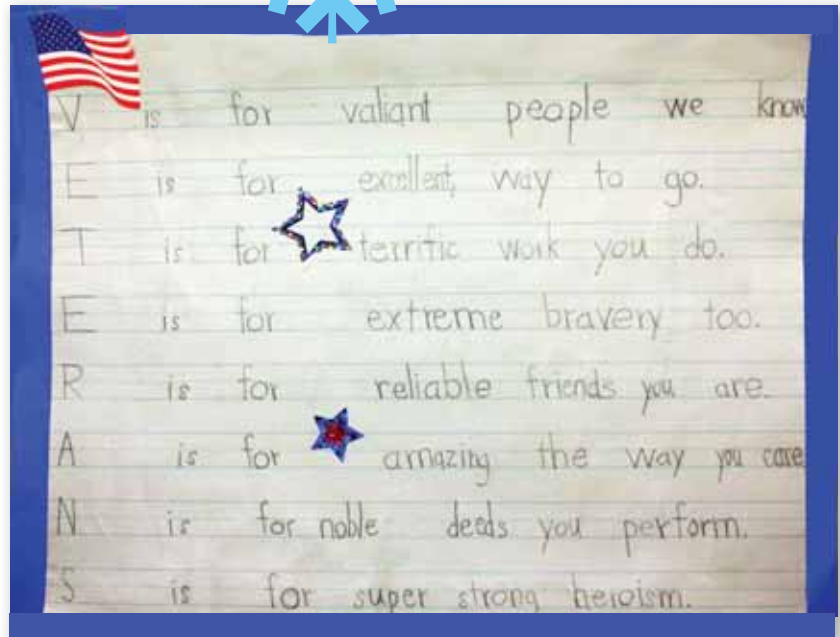 V is for valiant people we know
E is for excellent, way to go.
T is for terrific work you do.
E is for extreme bravery too.
R is for reliable friends you are.
A is for amazing the way you care
N is for noble deeds you perform.
S is for super strong heroism.